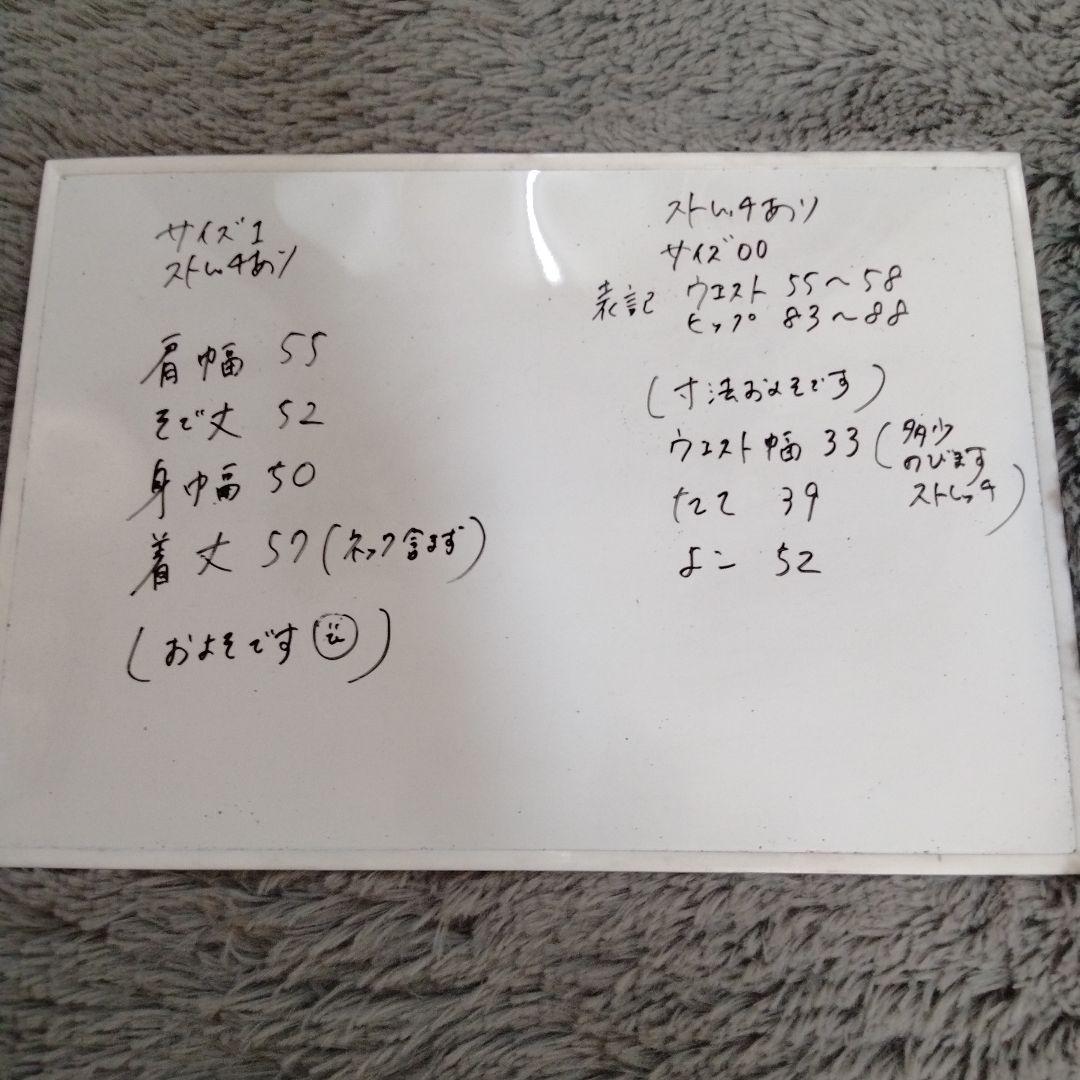 サイズ1
ストレッチあり
肩幅 55
そで丈 52
身幅 50
着丈 57(ネック含まず)
(およそです)
ストレッチあり
サイズ00
表記 ウエスト 55〜58
ヒップ 83〜88
(寸法およそです)
ウエスト幅 33(多少
のびます
ストレッチ)
たて 39
よこ 52